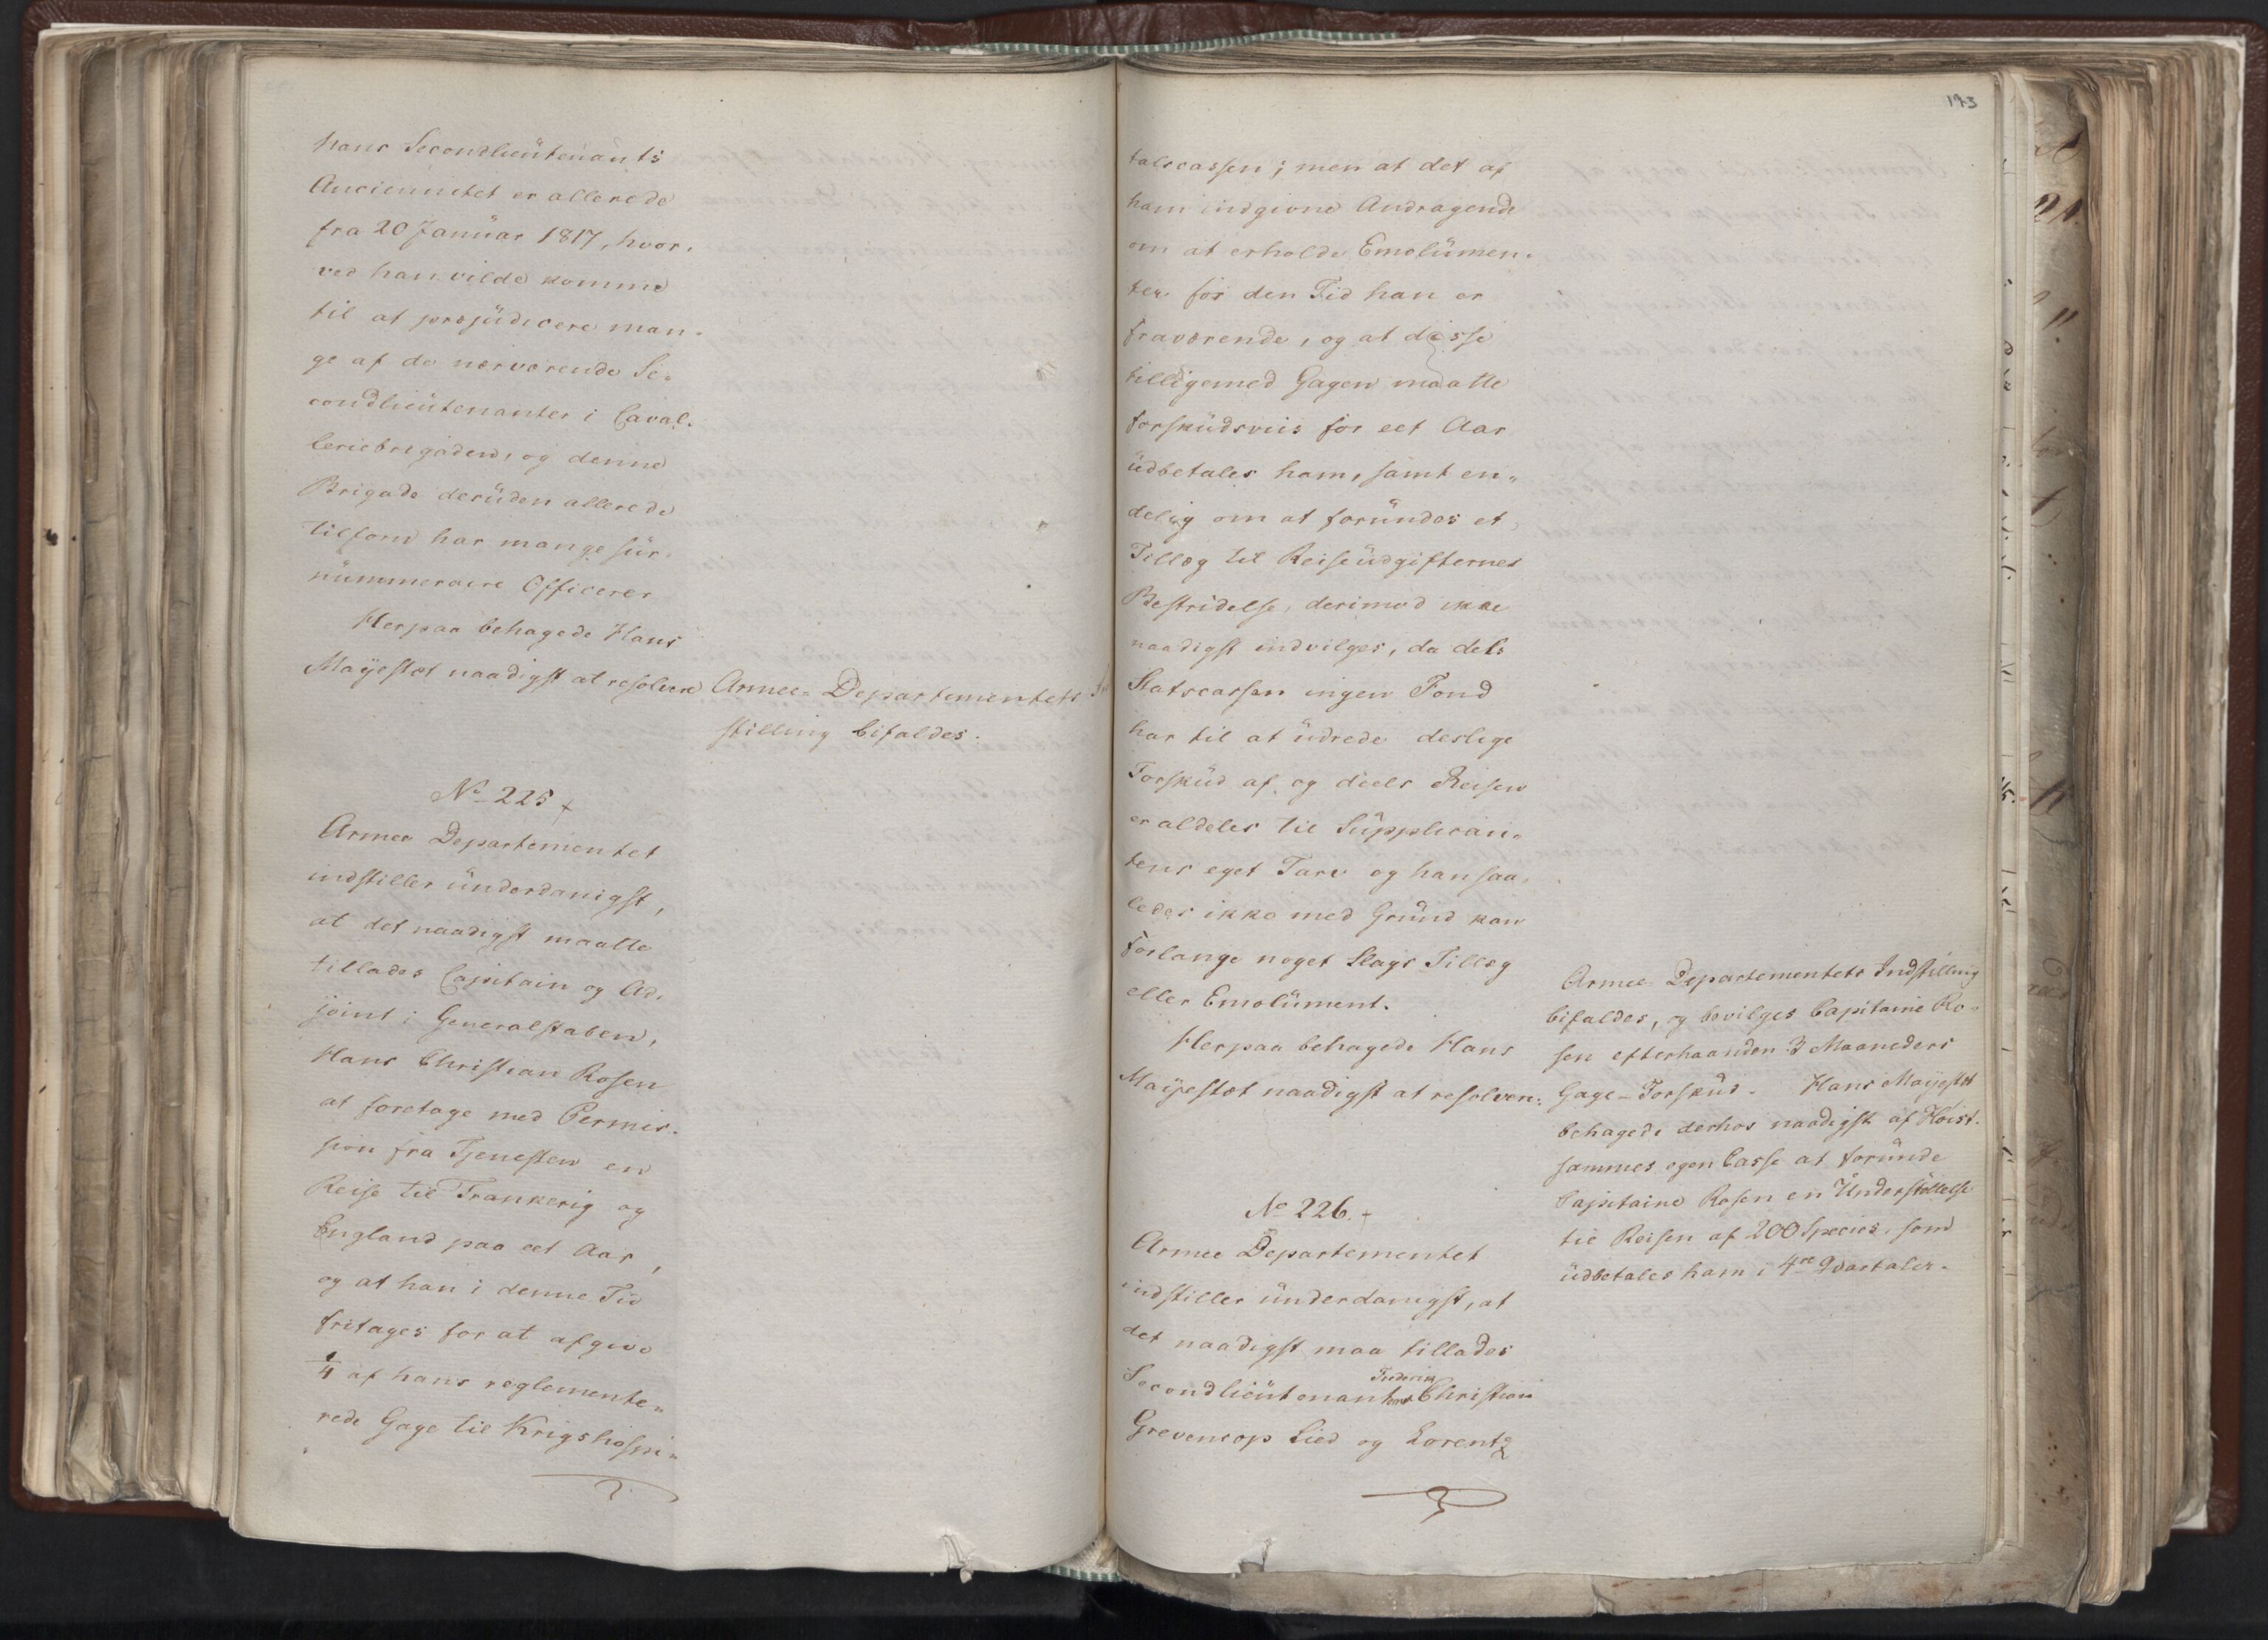 hans Secondlieütenants
Anciennitet er allerede
fra 20 Janüar 1817, hvor,
ved han vilde komme
til at præjüdicere man-
ge af de nærværende Se-
condlieütenanter i Caval-
leriebrigaden, og denne
Brigade derüden allerede
tilforn har mange sür-
nümmeraire Officerer
Herpaa behagede Hans
Mayestæt naadigst at resolvere
Armee-Departementets In
stilling bifaldes.
No 225 +
Armee Departementet
indstiller ünderdanigst,
at det naadigst maatte
tillades Capitain og Ad-
joint i Generalstaben,
Hans Christian Rosen
at foretage med Permis-
sion fra Tjenesten en
Reise til Frankerig og
England paa eet Aar,
og at han i denne Tid
fritages for at afgive
1/4 af hans reglemente-
rede Gage til Krigshospi-
173
talscassen; men at det af
ham indgivne Andragende
om at erholde Emolümen-
ter for den Tid han er
fraværende, og at disse
tilligemed Gagen maatte
forsküdsviis for eet Aar
üdbetales ham, samt en-
delig om at foründes et
Tillæg til Reiseüdgifternes
Bestridelse, derimod ikke
naadigst indvilges, da dels
Statscassen ingen Fond
har til at üdrede deslige
Forsküd af, og deels Reisen
er aldeles til Süpplican-
tens eget Tarv og han saa-
ledes ikke med Gründ kan
forlange noget Slags Tillæg
eller Emolüment.
Herpaa behagede Hans
Mayestæt naadigst at resolvere:
Armee-Departementets Indstilling
bifaldes, og bevilges Capitaine Ro-
sen efterhaanden 3 Maaneders
Gage-Forsküd. Hans Mayestæt
behagede derhos naadigst af Høist-
sammes egen Casse at foründe
Capitaine Rosen en Ünderstøttelse
til Reisen af 200 Species, som
üdbetales ham i 4re Qvartaler.
No 226. +
Armee Departementet
indstiller ünderdanigst, at
det naadigst maa tillades
Frederik
Secondlieütenanterne Christian
Grevencop Lied og Lorentz